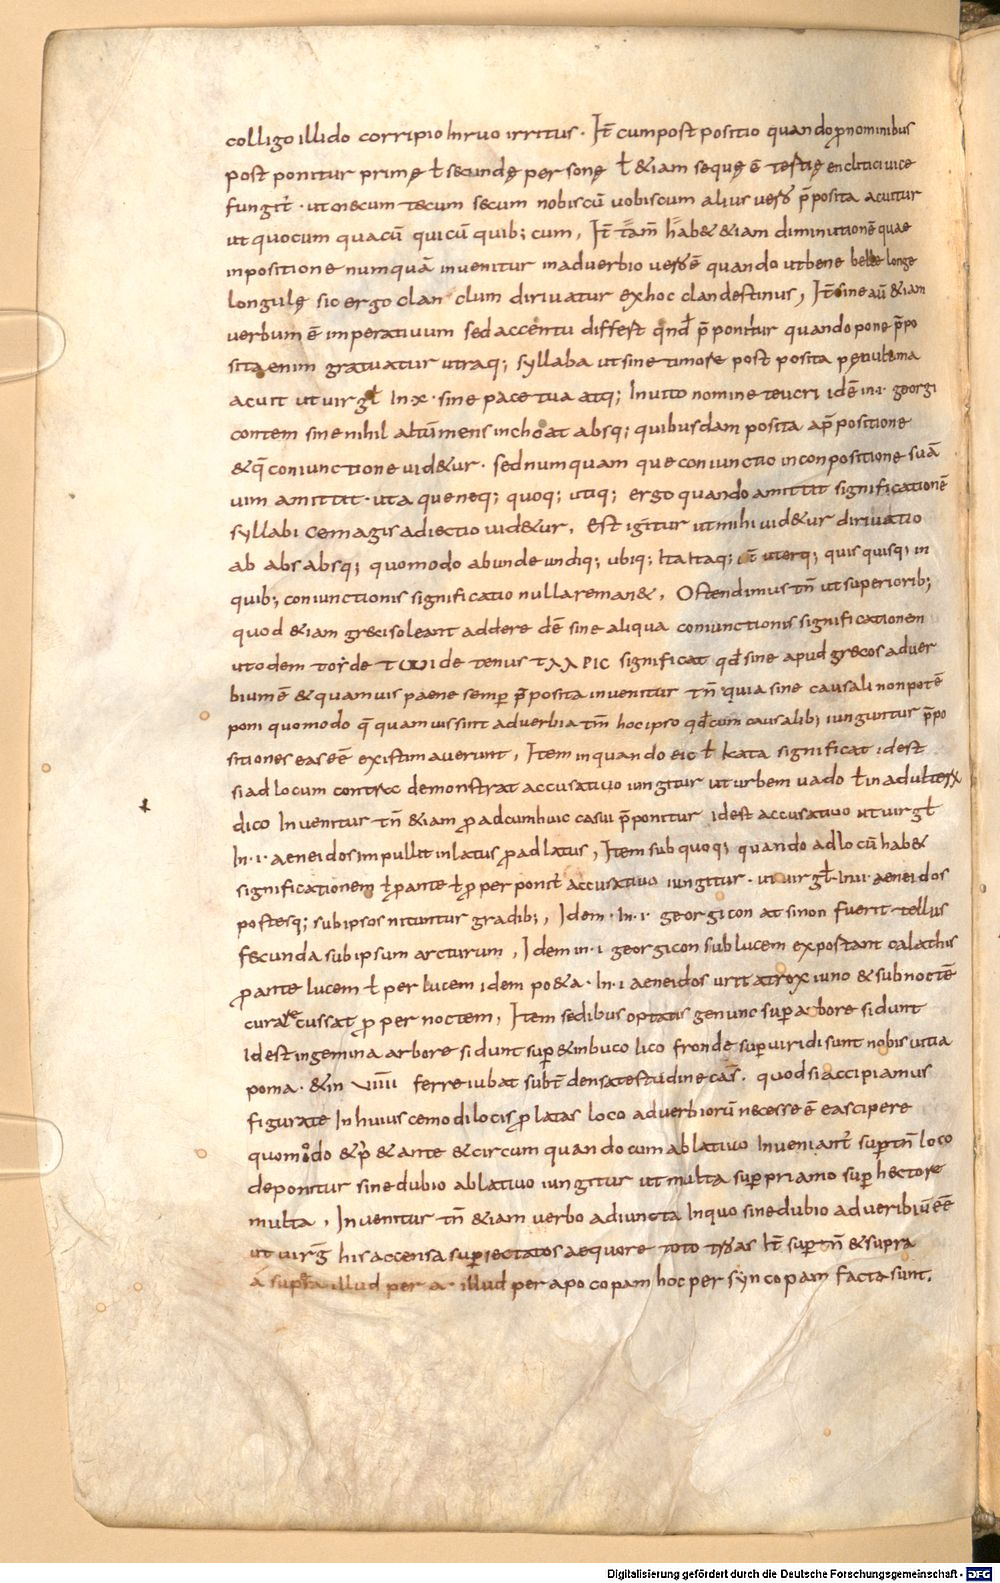 colligo illido corripio Inruo irritus · It̄ cum post positio quando ꝓ nominibus
post ponitur primę ł secundę per sonę ł &iam sequę ē testię encliticiuice
fungit̄ · ut mecum tecum secum nobiscū uobiscum alius uero p̄posita acuitur
ut quocum quacū quicū quib; cum, It̄ tam̄ hab& &iam diminutionē quae
inpositione numquā inuenitur inaduerbio uero ē quando ut bene belle longe
longulę sic ergo clan clum diriuatur ex hoc clandestinus, It̄ sine aū &iam
uerbum ē imperatiuum sed accentu differt qnd p̄ponitur quando pone p̄po
sita enim grauatur utraq; syllaba ut sine timore post posita pęnultima
acuit ut uirgł In·x· sine pace tua atq; Inuito nomine teucri idē in·i· georgi
contem sine nihil altū mens inchoat absq; quibusdam posita ap̄positione
&q̄ coniunctione uid&ur · sed numquam que coniunctio in conpositione suā
uim amittit · ut a que neq; quoq; utiq; ergo quando amittit significationē
syllabi ce magis adiectio uid&ur, Est igitur ut mihi uid&ur diriuatio
ab abs absq; quomodo ab unde undiq; ubiq; Ita Itaq; ut uterq; quis quisq; in
quib; coniunctionis significatio nulla reman&, Ostendimus tn̄ ut superiorib;
quod &iam greci soleant addere dē sine aliqua coniunctionis significationem
ut odem toi de tωi de tenus tλλ pic significat qd sine apud grecos aduer
bium ē & quamuis paene semp̄ p̄posita inuenitur tn̄ quia sine causali non potē
poni quomodo q̄ quamuis sint aduerbia tm̄ hoc ipso qd cum causalib; iunguntur p̄po
sitiones eas eē existimauerunt, Item in quando eic ł kata significat idest
si ad locum contra demonstrat accusatiuo iungitur ut urbem uado ł in adulterū
dico Inuenitur tn̄ &iam ꝓ ad cum huic casui p̄ponitur idest accusatiuo ut uirgł
In·i· aeneidos impulit in latus ꝓ ad latus, Item sub quoq; quando ad locū hab&
significationem ł ꝓ ante ł ꝓ per ponit̄ accusatiuo iungitur · ut uirgł·In·ii· aeneidos
postesq; sub ipsos nituntur gradib;, Idem·In·i· georgicon at si non fuerit tellus
fecunda sub ipsum arcturum, Idem in·i georgicon sub lucem exportant calathis
ꝓ ante lucem ł per lucem idem po&a· In·i aeneidos urit atrox iuno & sub noctē
cura re cussat ꝓ per noctem, Item sedibus optatis gemina sup̄ arbore sidunt
Idest in gemina arbore sidunt sup̄ & in bucolico fronde sup̄ uiridi sunt nobis mitia
poma · & in viiii ferre iubat subt̄ densa testudine cas̄. quod si accipiamus
figurate In huius cemodi locis ꝓ latas loco aduerbiorū necesse ē eas cipere
quomodo & p̄ & ante & circum quando cum ablatiuo Inueniant̄ sup̄ tn̄ loco
de ponitur sine dubio ablatiuo iungitur ut multa sup̄ priamo sup̄ hectore
multa, Inuenitur tn̄ &iam uerbo adiuncta In quo sine dubio aduerbiū eē
ut uirg̅ his accensa sup̄ iectatos aequore toto troas It̄ sup̄ tn̄ & supra
a supra illud per a· illud per apocopam hoc per syncopam facta sunt.
Digitalisierung gefördert durch die Deutsche Forschungsgemeinschaft - DFG